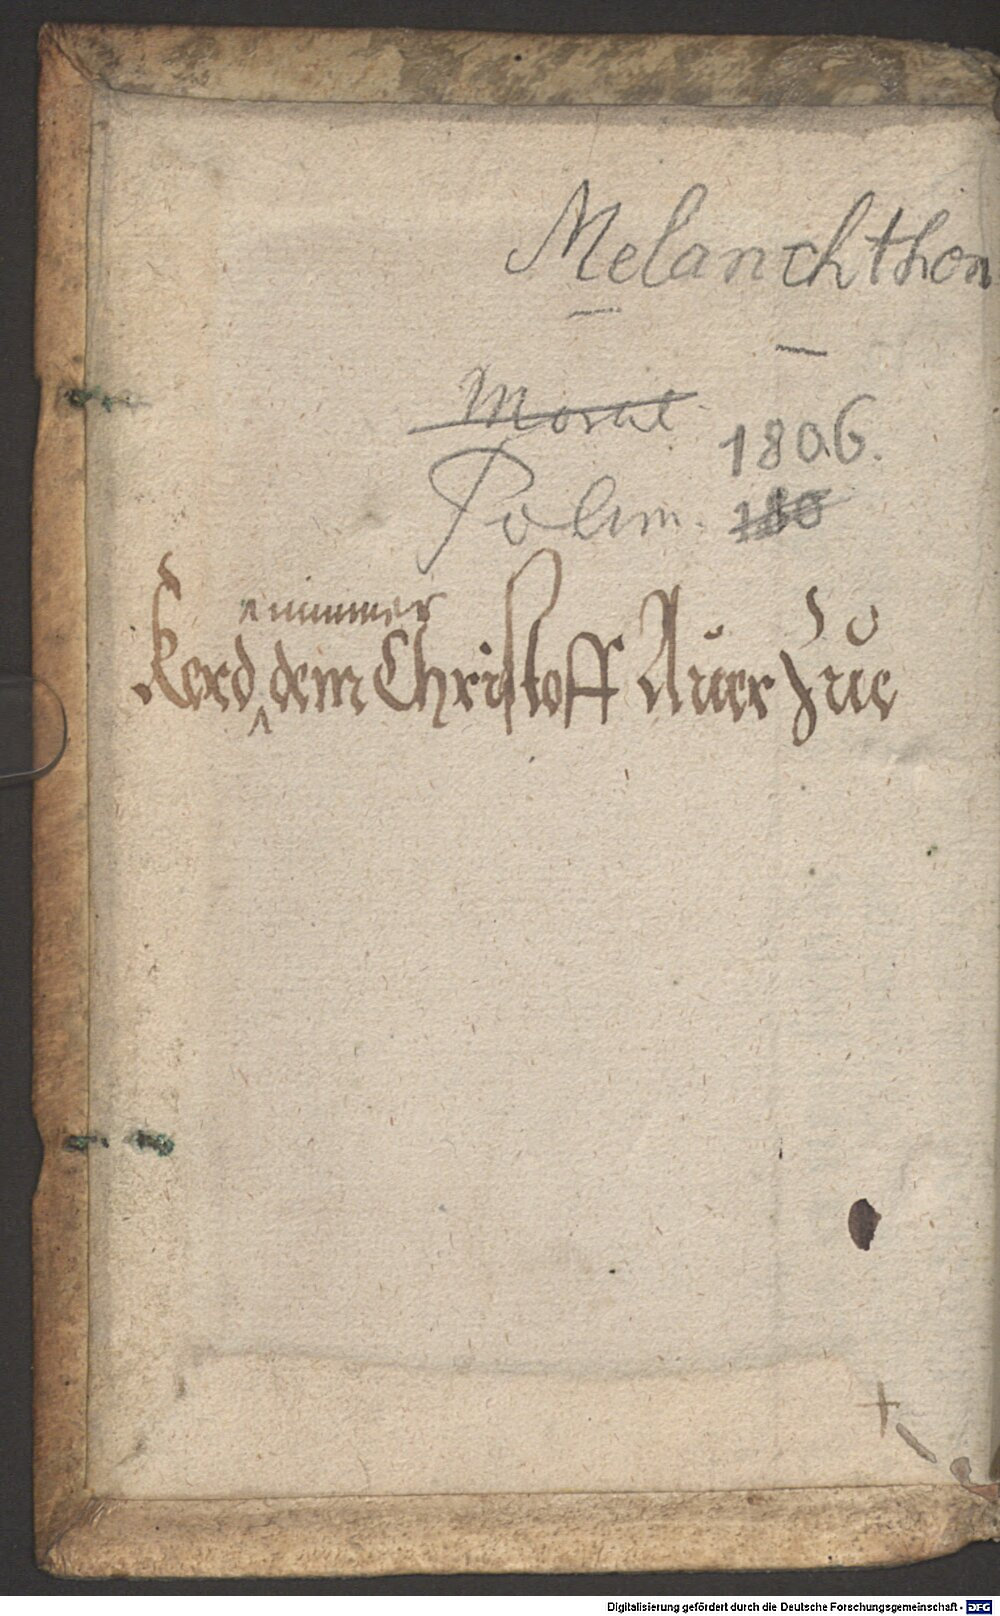 Melanchthon
Moral
Polem. 1806.
180
nimmer
Kerd dem Christoff Auer zue
Digitalisierung gefördert durch die Deutsche Forschungsgemeinschaft - DFG